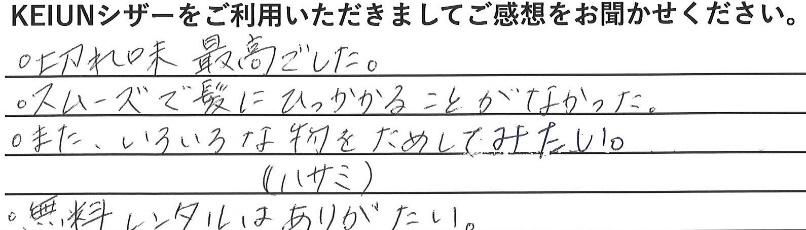 KEIUNシザーをご利用いただきましてご感想をお聞かせください。
○切れ味 最高でした。
○スムーズで髪にひっかかることがなかった。
○また、いろいろな物をためしてみたい。
(ハサミ)
○無料レンタルはありがたい。